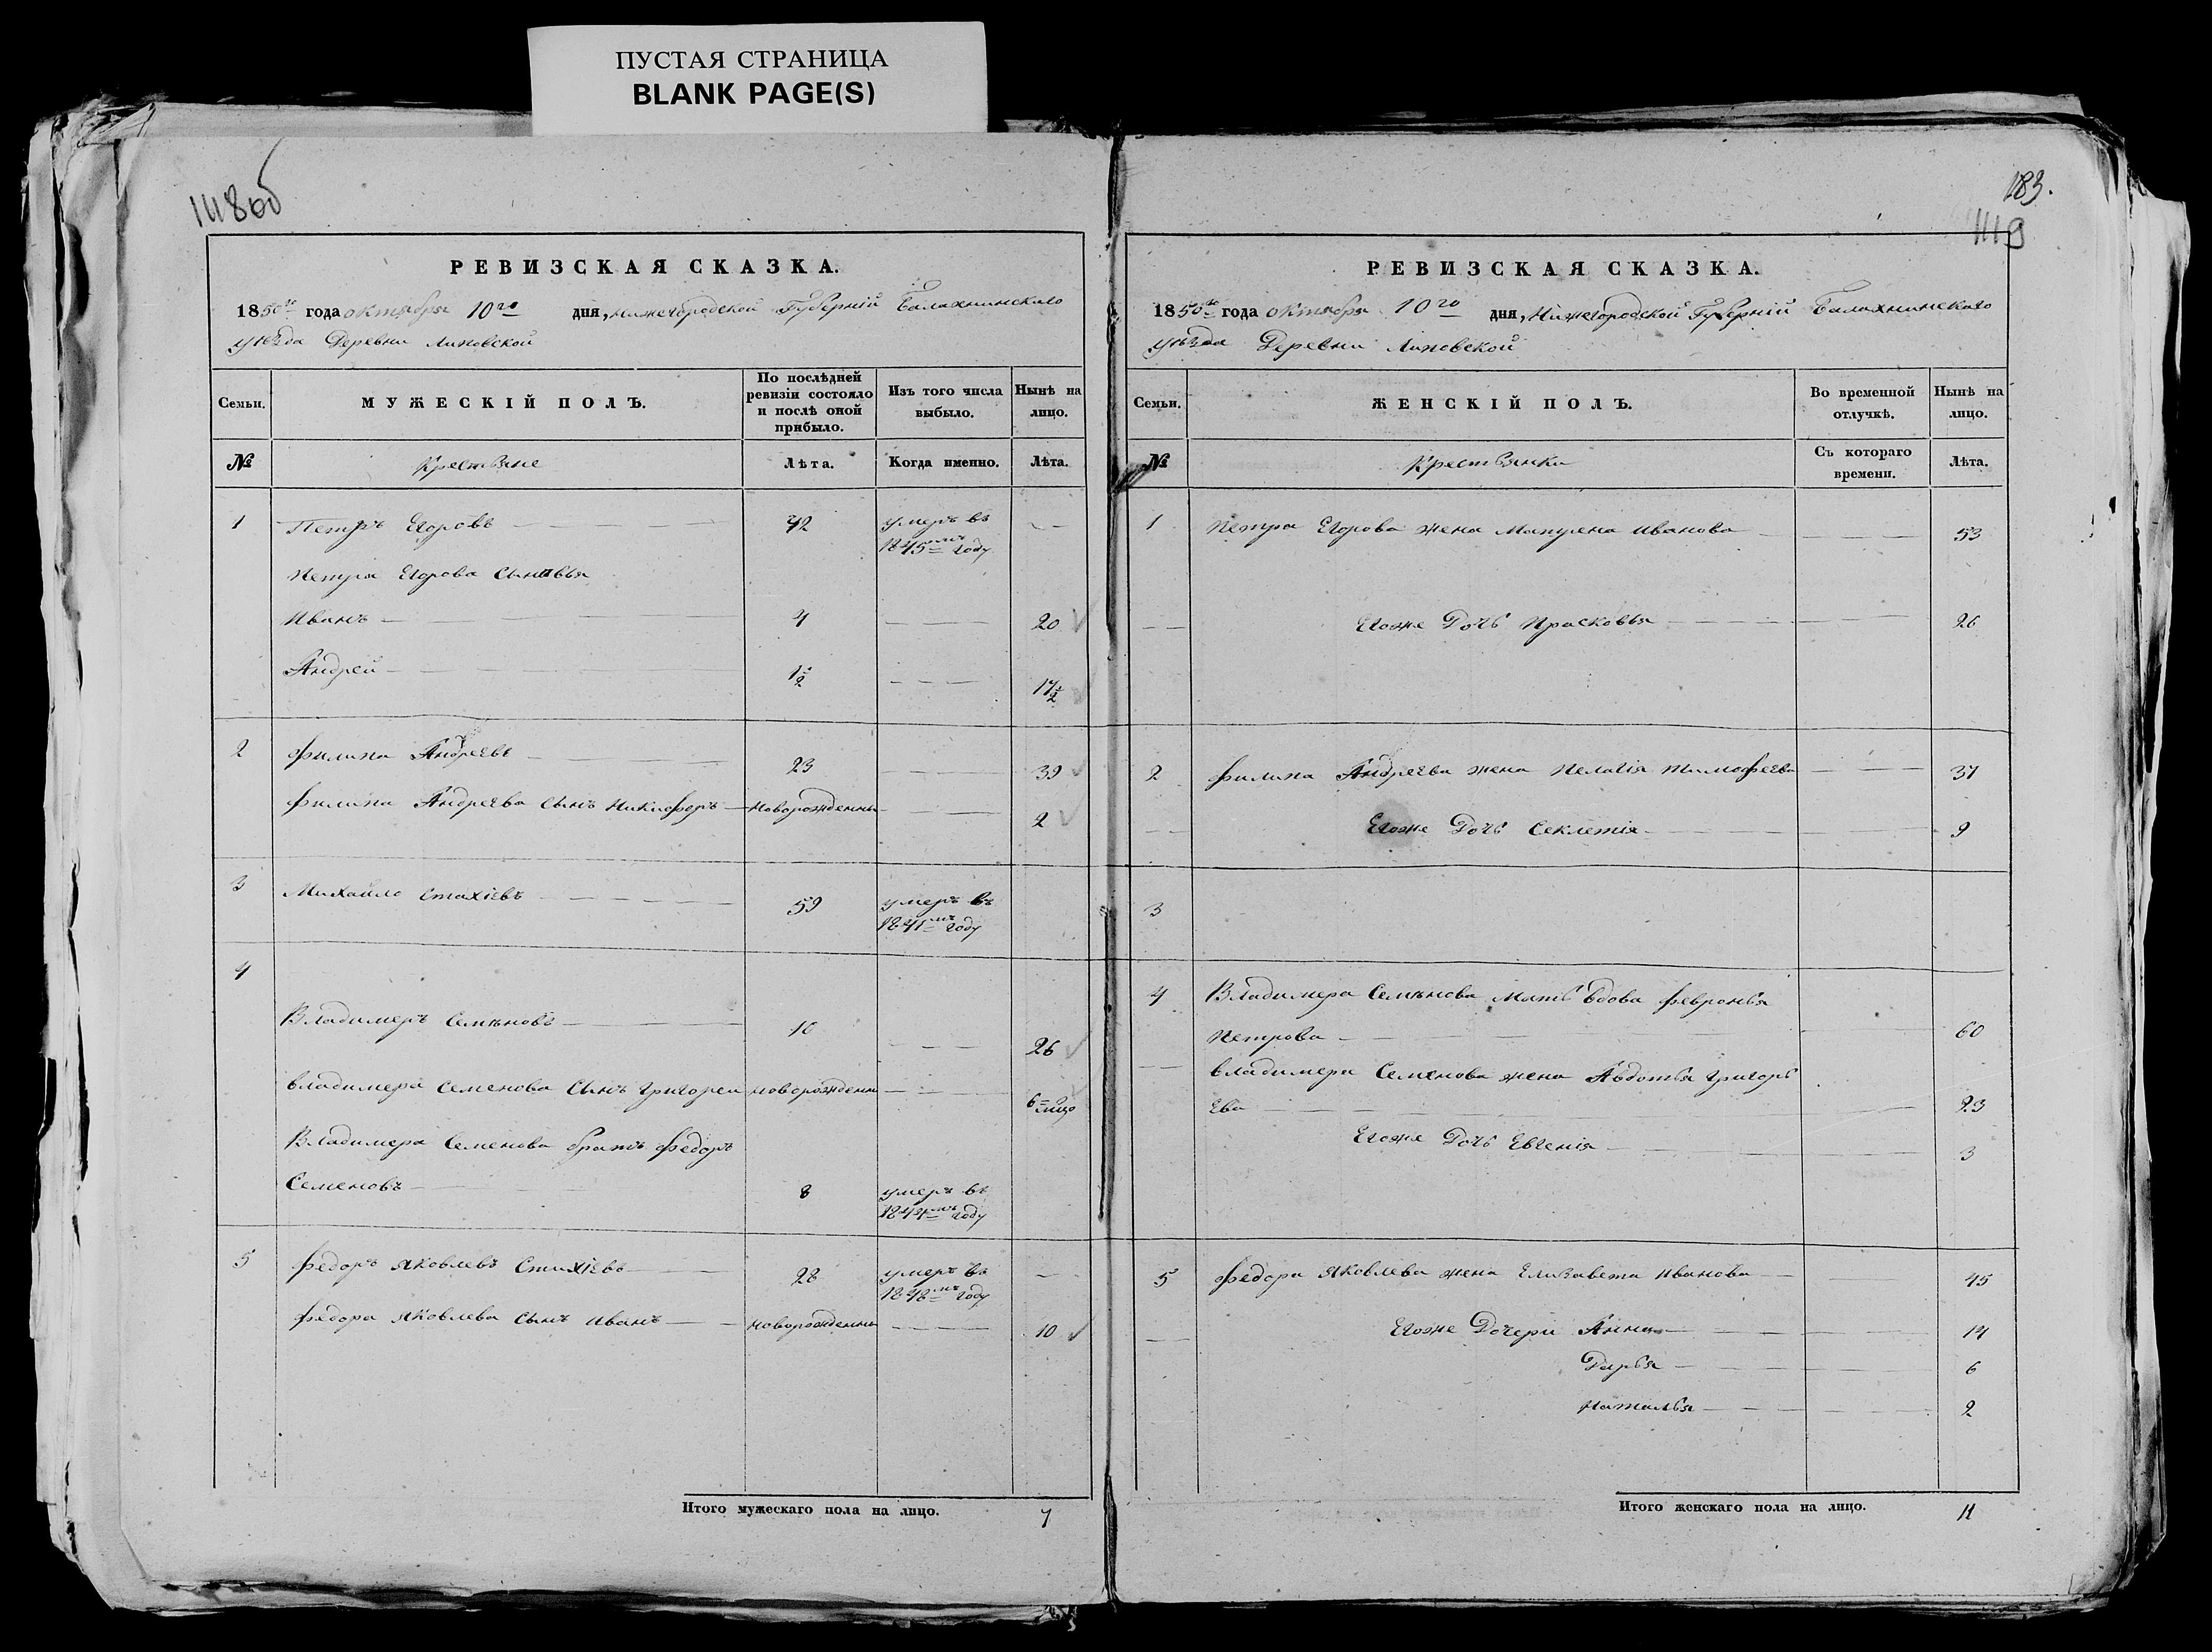 ПУСТАЯ СТРАНИЦА
BLANK PAGE(S)
1118об
РЕВИЗСКАЯ СКАЗКА.
1850го года октября 10го дня, Нижегородской Губерніи Балахнинскаго
уѣзда Деревни Липовской
Семьи. МУЖЕСКІЙ ПОЛЪ. По послѣдней ревизіи состояло и послѣ оной прибыло. Изъ того числа выбыло. Нынѣ на лицо.
№ Крестьяне Лѣта. Когда именно. Лѣта.
1 Петръ Егоровъ 42 умеръ въ 1845мъ году
Петра Егорова сыновья
Иванъ 4 20
Андрей 1½ 17½
2 Филипа Андреевъ 23 39
Филипа Андреева сынъ Никифоръ новорожденны 2
3 Михайло Стахіевъ 59 умеръ въ 1841мъ году
4
Владимеръ Семѣновъ 10 26
Владимера Семенова сынъ Григореи новорожденн 6=лицо
Владимера Семенова братъ Федоръ
Семеновъ 8 умеръ въ 1844мъ году
5 Федоръ Яковлевъ Стахіевъ 28 умеръ въ 1848мъ году
Федора Яковлева сынъ Иванъ новорожденны 10
Итого мужескаго пола на лицо. 7
183.
1119
РЕВИЗСКАЯ СКАЗКА.
1850го года октября 10го дня, Нижегородской Губерніи Балахнинскаго
уѣзда Деревни Липовской
Семьи. ЖЕНСКІЙ ПОЛЪ. Во временной отлучкѣ. Нынѣ на лицо.
№ Крестьянки Съ котораго времени. Лѣта.
1 Петра Егорова жена Матрена Иванова 53
Егоже Дочь Прасковья 26
2 Филипа Андреева жена Пелагія Тимофеева 37
Егоже Дочь Секлетія 9
3
4 Владимера Семѣнова мать вдова Февронья
Петрова 60
Владимера Семенова жена Авдотья Григорь
ева 23
Егоже Дочь Евгенія 3
5 Федора Яковлева жена Елизавета Иванова 45
Егоже Дочери Анна 14
Дарья 6
Наталья 2
Итого женскаго пола на лицо. 11